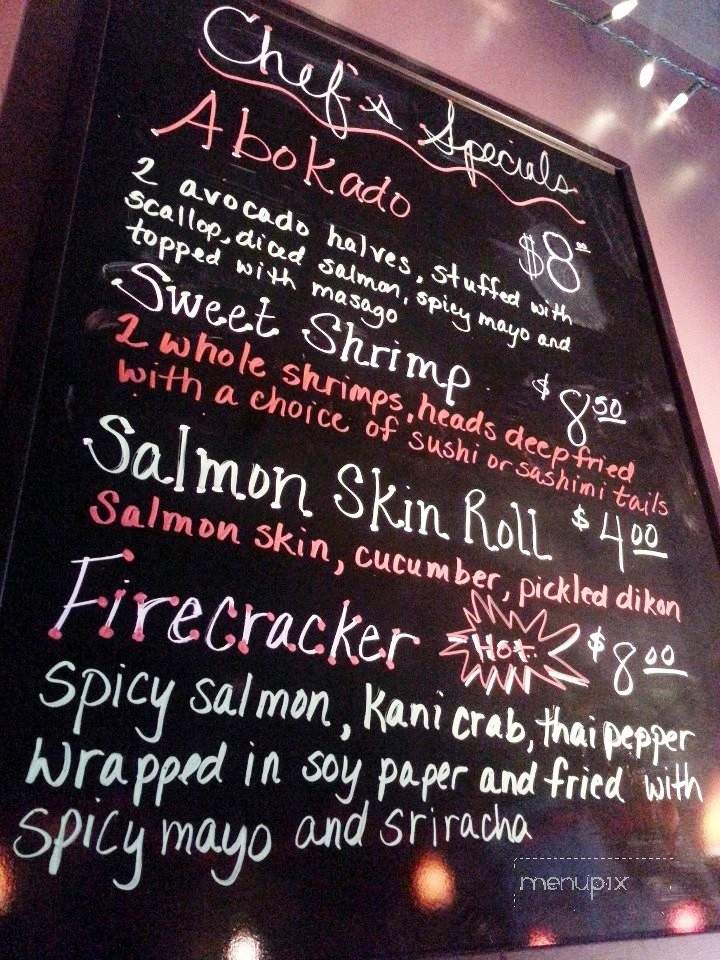 Chef's Specials
Abokado $8.00
2 avocado halves, stuffed with
scallop, diced salmon, spicy mayo and
topped with masago
Sweet Shrimp $8.50
2 whole shrimps, heads deep fried
with a choice of sushi or sashimi tails
Salmon Skin Roll $4.00
Salmon skin, cucumber, pickled dikon
Firecracker Hot $8.00
Spicy salmon, Kani crab, thai pepper
Wrapped in soy paper and fried with
spicy mayo and sriracha
menupix